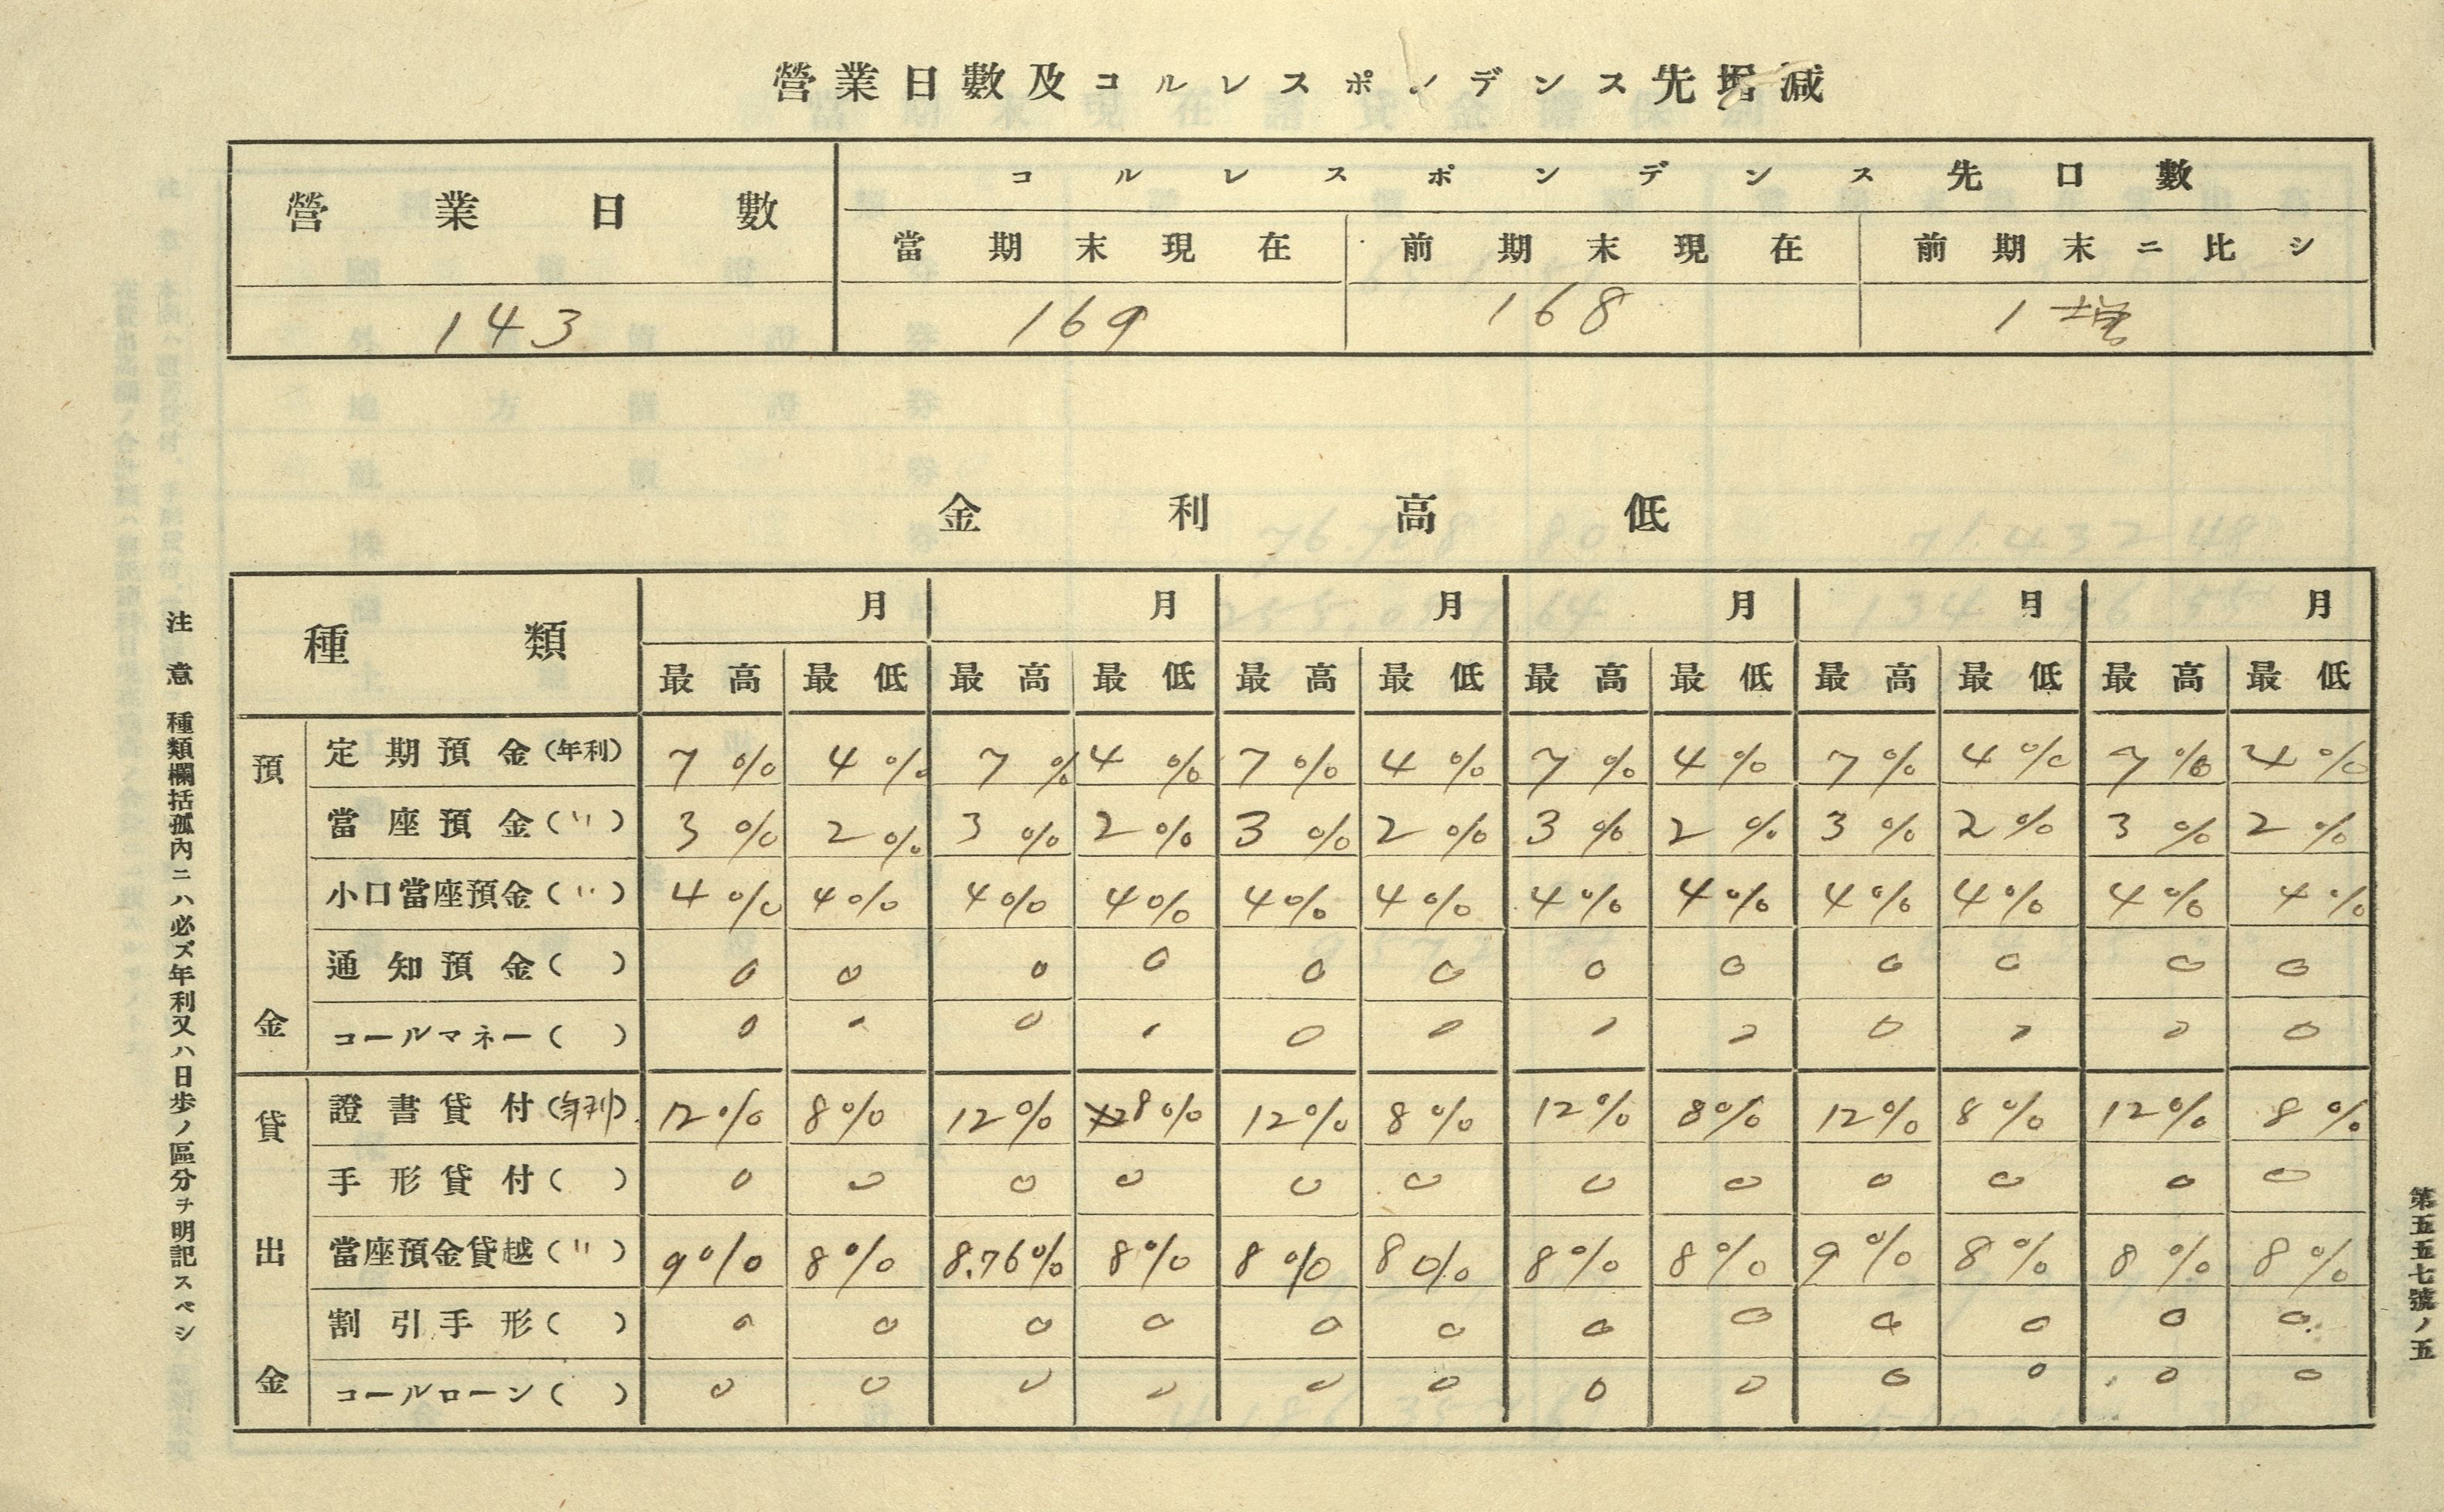 營業日數及コルレスポンデンス先増減
營業日數 コルレスポンデンス先口數
當期末現在 前期末現在 前期末ニ比シ
143 169 168 1増
金利高低
種類 月 月 月 月 月 月
最高 最低 最高 最低 最高 最低 最高 最低 最高 最低 最高 最低
預金
定期預金(年利) 7% 4% 7% 4% 7% 4% 7% 4% 7% 4% 7% 4%
當座預金(〃) 3% 2% 3% 2% 3% 2% 3% 2% 3% 2% 3% 2%
小口當座預金(〃) 4% 4% 4% 4% 4% 4% 4% 4% 4% 4% 4% 4%
通知預金( ) 0 0 0 0 0 0 0 0 0 0 0 0
コールマネー( ) 0 0 0 0 0 0 0 0 0 0 0 0
貸出金
證書貸付(年利) 12% 8% 12% 8% 12% 8% 12% 8% 12% 8% 12% 8%
手形貸付( ) 0 0 0 0 0 0 0 0 0 0 0 0
當座預金貸越(〃) 9% 8% 8.76% 8% 8% 8% 8% 8% 9% 8% 8% 8%
割引手形( ) 0 0 0 0 0 0 0 0 0 0 0 0
コールローン( ) 0 0 0 0 0 0 0 0 0 0 0 0
注意 種類欄括孤內ニハ必ズ年利又ハ日歩ノ區分ヲ明記スベシ
第五五七號ノ五